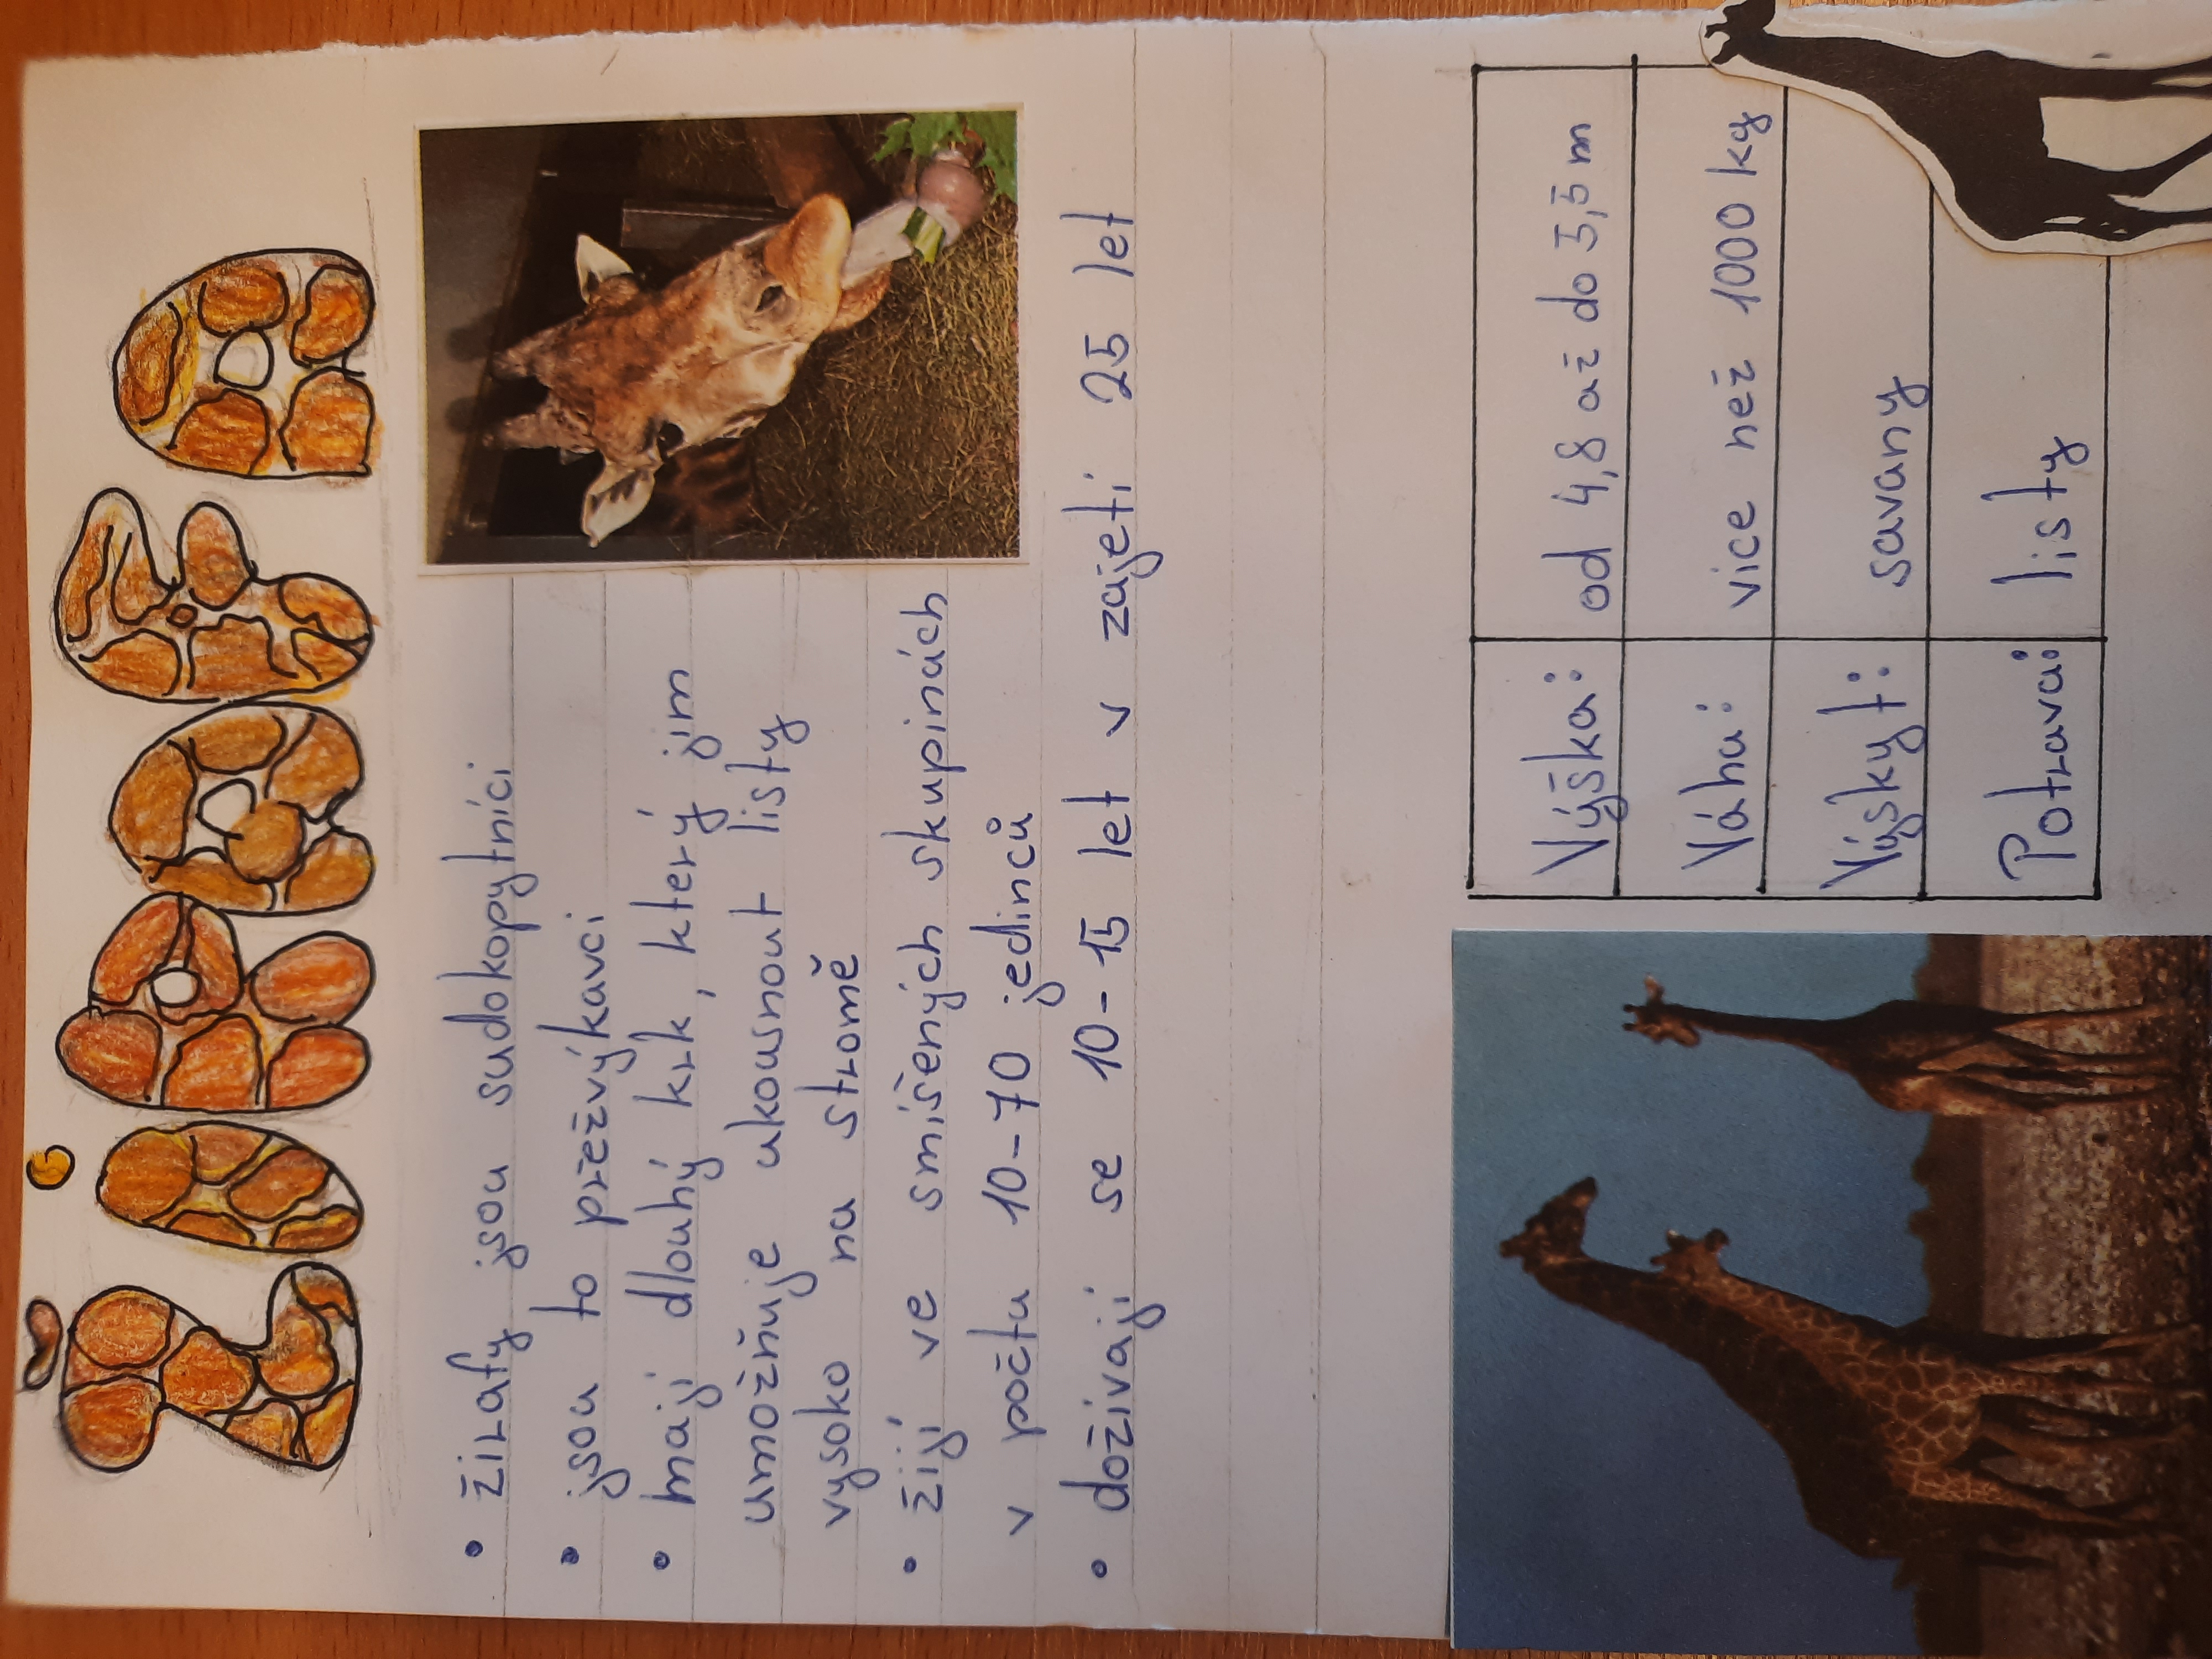 ŽIRAFA
• žirafy jsou sudokopytníci
• jsou to přežvýkavci
• mají dlouhý krk, který jim
umožňuje ukousnout listy
vysoko na stromě
• žijí ve smíšených skupinách
v počtu 10-70 jedinců
• dožívají se 10-15 let v zajetí 25 let
Výška: od 4,8 až do 5,5 m
Váha: více než 1000 kg
Výskyt: savany
Potrava: listy